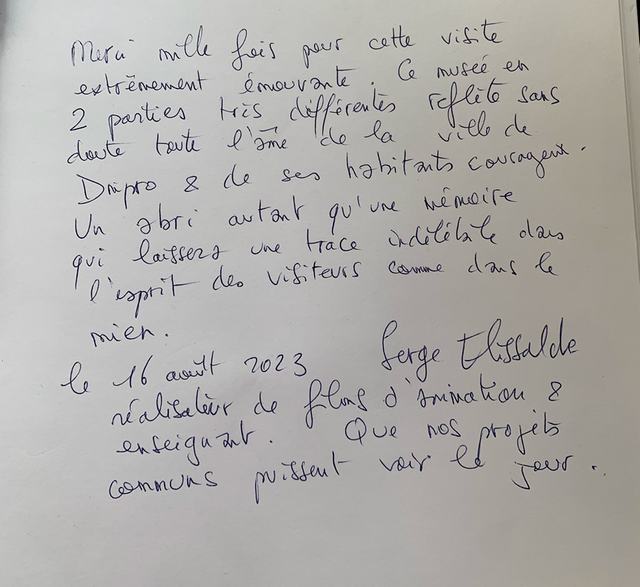 Merci mille fois pour cette visite
extrêmement émouvante. Ce musée en
2 parties très différentes reflète sans
doute toute l'âme de la ville de
Dnipro & de ses habitants courageux.
Un abri autant qu'une mémoire
qui laissera une trace indélébile dans
l'esprit des visiteurs comme dans le
mien.
le 16 août 2023 Serge Elissalde
réalisateur de films d'animation &
enseignant. Que nos projets
communs puissent voir le jour.